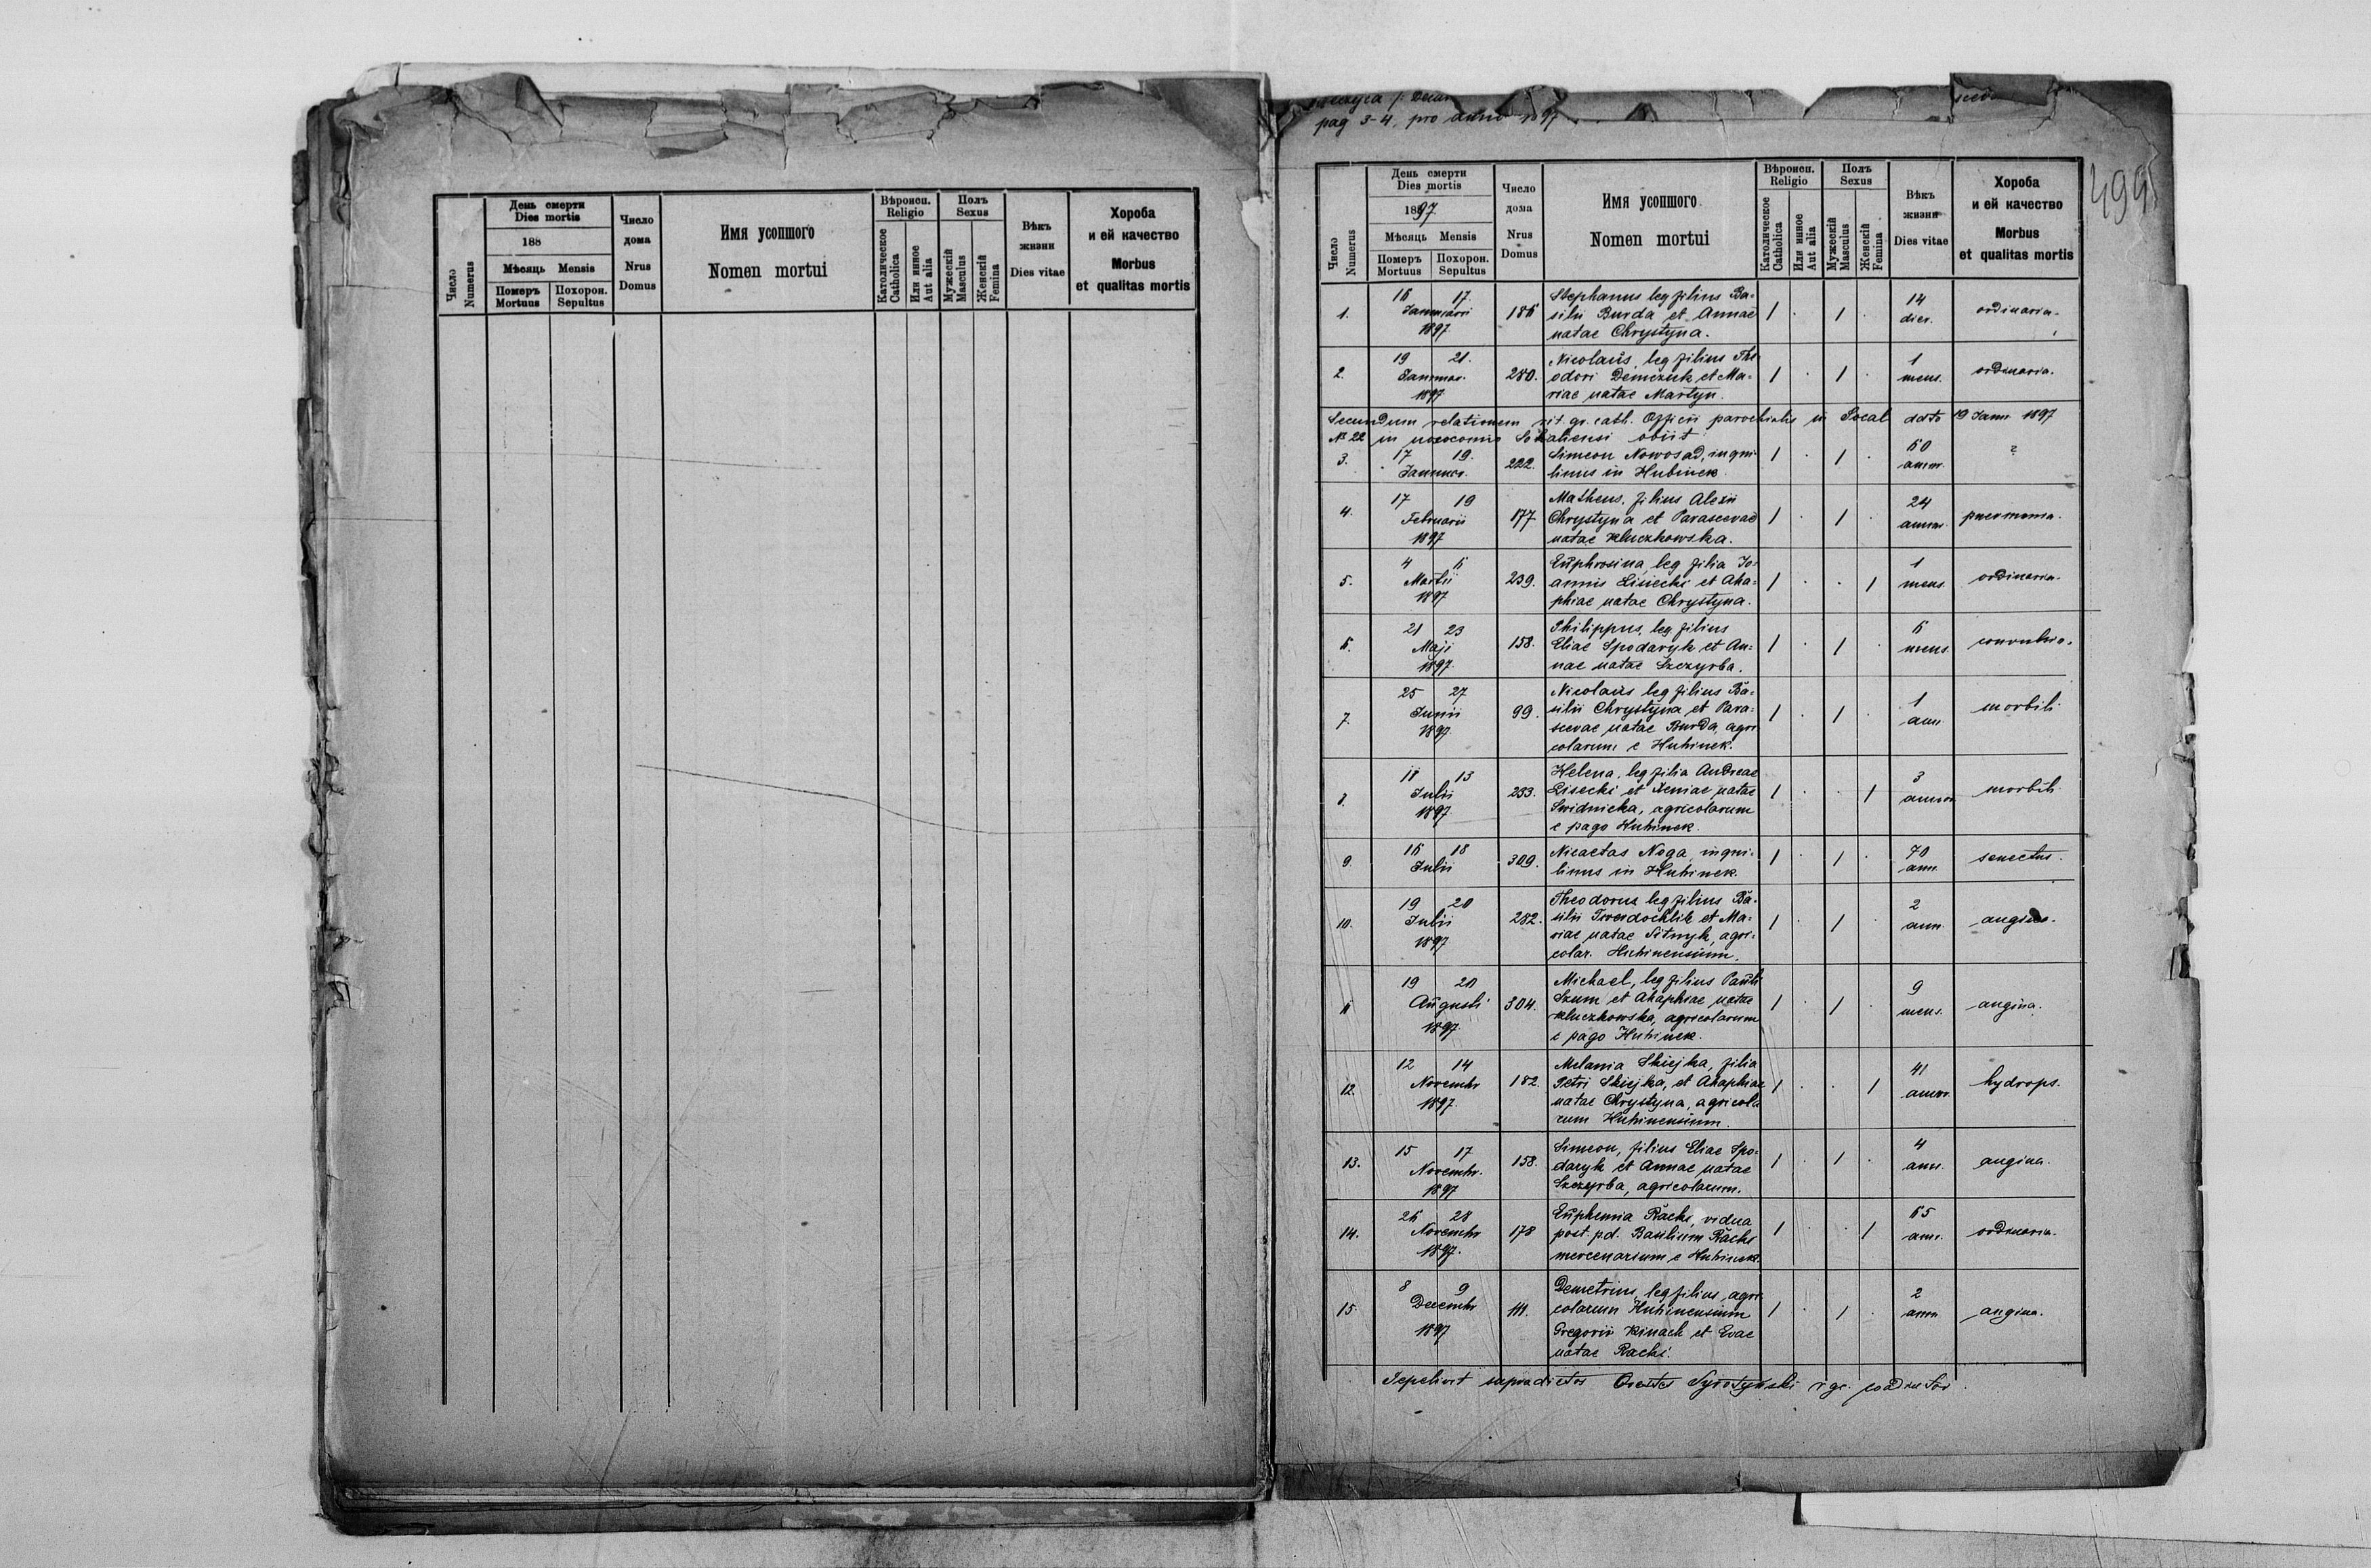 День смерти
Dies mortis
188
Мѣсяць Mensis
Померъ
Mortuus
Похорон.
Sepultus
Число
Numerus
Число
дома
Nrus
Domus
Имя усопшого
Nomen mortui
Вѣроисп.
Religio
Католическое
Catholica
Или иное
Aut alia
Полъ
Sexus
Мужескій
Masculus
Женскій
Femina
Вѣкъ
жизни
Dies vitae
Хороба
и ей качество
Morbus
et qualitas mortis
pag 3-4. pro anno 1897
499
Число
Numerus
День смерти
Dies mortis
1897
Мѣсяць Mensis
Померъ
Mortuus
Похорон.
Sepultus
Число
дома
Nrus
Domus
Имя усопшого
Nomen mortui
Вѣроисп.
Religio
Католическое
Catholica
Или иное
Aut alia
Полъ
Sexus
Мужескій
Masculus
Женскій
Femina
Вѣкъ
жизни
Dies vitae
Хороба
и ей качество
Morbus
et qualitas mortis
1. 16 17 Januarii 1897 186 Stephanus leg filius Ba=
silii Burda et Annae
natae Chrystyna. 1 . 1 . 14 dier. ordinaria.
2. 19 21. Januar. 1897 280. Nicolaus, leg filius The
odori Demczuk et Ma=
riae natae Martyn. 1 . 1 . 1 mens. ordinaria.
Secundum relationem rit. gr. cath. Officii parochialis in Socal ddto 19 Janr 1897
№ 22 in nosocomio Sokaliensi obiit
3. 17 19. Januar. 222. Simeon Nowosad, inqui=
linus in Hubinek. 1 . 1 . 60 annr. ?
4. 17 19 Februarii 1897 177 Matheus, filius Alexii
Chrystyna et Parascevae
natae Kluczkowska. 1 . 1 . 24 annor. pneumonia.
5. 4 6 Martii 1897 239. Euphrosina, leg filia Jo=
annis Lisiecki et Aha=
phiae natae Chrystyna. 1 . . 1 1 mens. ordinaria.
6. 21 23 Maji 1897. 158. Philippus, leg filius
Eliae Spodaryk et An=
nae natae Szczyrba. 1 . 1 . 6 mens. convulsio.
7. 25 27 Junii 1897. 99. Nicolaus leg filius Ba=
silii Chrystyna et Para=
scevae natae Burda, agri
colarum e Hubinek. 1 . 1 . 1 ann. morbili
8. 11 13 Julii 1897. 233. Helena, leg filia Andreae
Lisecki et Xeniae natae
Swidnicka, agricolarum
e pago Hubinek. 1 . . 1 3 annor. morbili.
9. 16 18 Julii 309. Nicaetas Noga, inqui=
linus in Hubinek. 1 . 1 . 70 ann. senectus.
10. 19 20 Julii 1897 282. Theodorus leg filius Ba=
silii Twerdochlib et Ma=
riae natae Sitnyk, agri=
colar. Hubinensium. 1 . 1 . 2 ann. angina.
11 19 20 Augusti 1897. 304. Michael, leg filius Pauli
Szum et Ahaphiae natae
Kluczkowska, agricolarum
e pago Hubinek. 1 . 1 . 9 mens. angina.
12. 12 14 Novembr 1897. 182. Melania Skiejka, filia
Petri Skiejka, et Ahaphiae
natae Chrystyna, agricola
rum Hubinensium. 1 . . 1 41 annor. hydrops.
13. 15 17 Novembr. 1897 158. Simeon, filius Eliae Spo=
daryk et Annae natae
Szczyrba, agricolarum. 1 . 1 . 4 ann. angina.
14. 26 28 Novembr 1897. 178 Euphemia Racki, vidua
post p.d. Basilium Racki
mercenarium e Hubinek. 1 . . 1 65 ann. ordinaria.
15. 8 9 Decembr 1897 111. Demetrius, leg filius, agri
colarum Hubinensium
Gregorii Kinach et Evae
natae Racki. 1 . 1 . 2 ann angina.
Sepelivit supradictos Orestes Syrotynski r gr.